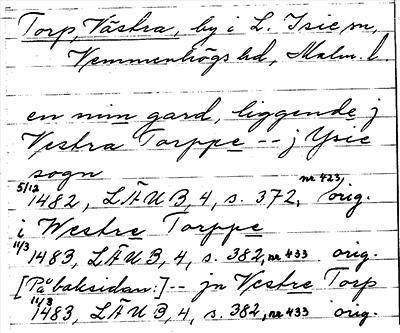 Torp, Västra, by i L. Isie sn,
Vemmenhögs hd, Malm. l.
en min gard, liggende j
Vestra Torppe -- j Ysie
sogn
5/12 1482, LÄUB, 4, s. 372, nr 423, orig.
i Westre Torppe
11/3 1483, LÄUB, 4, s. 382, nr 433 orig.
[På baksidan:] -- jn Vestre Torp
11/3 1483, LÄUB, 4, s. 382, nr 433 orig.